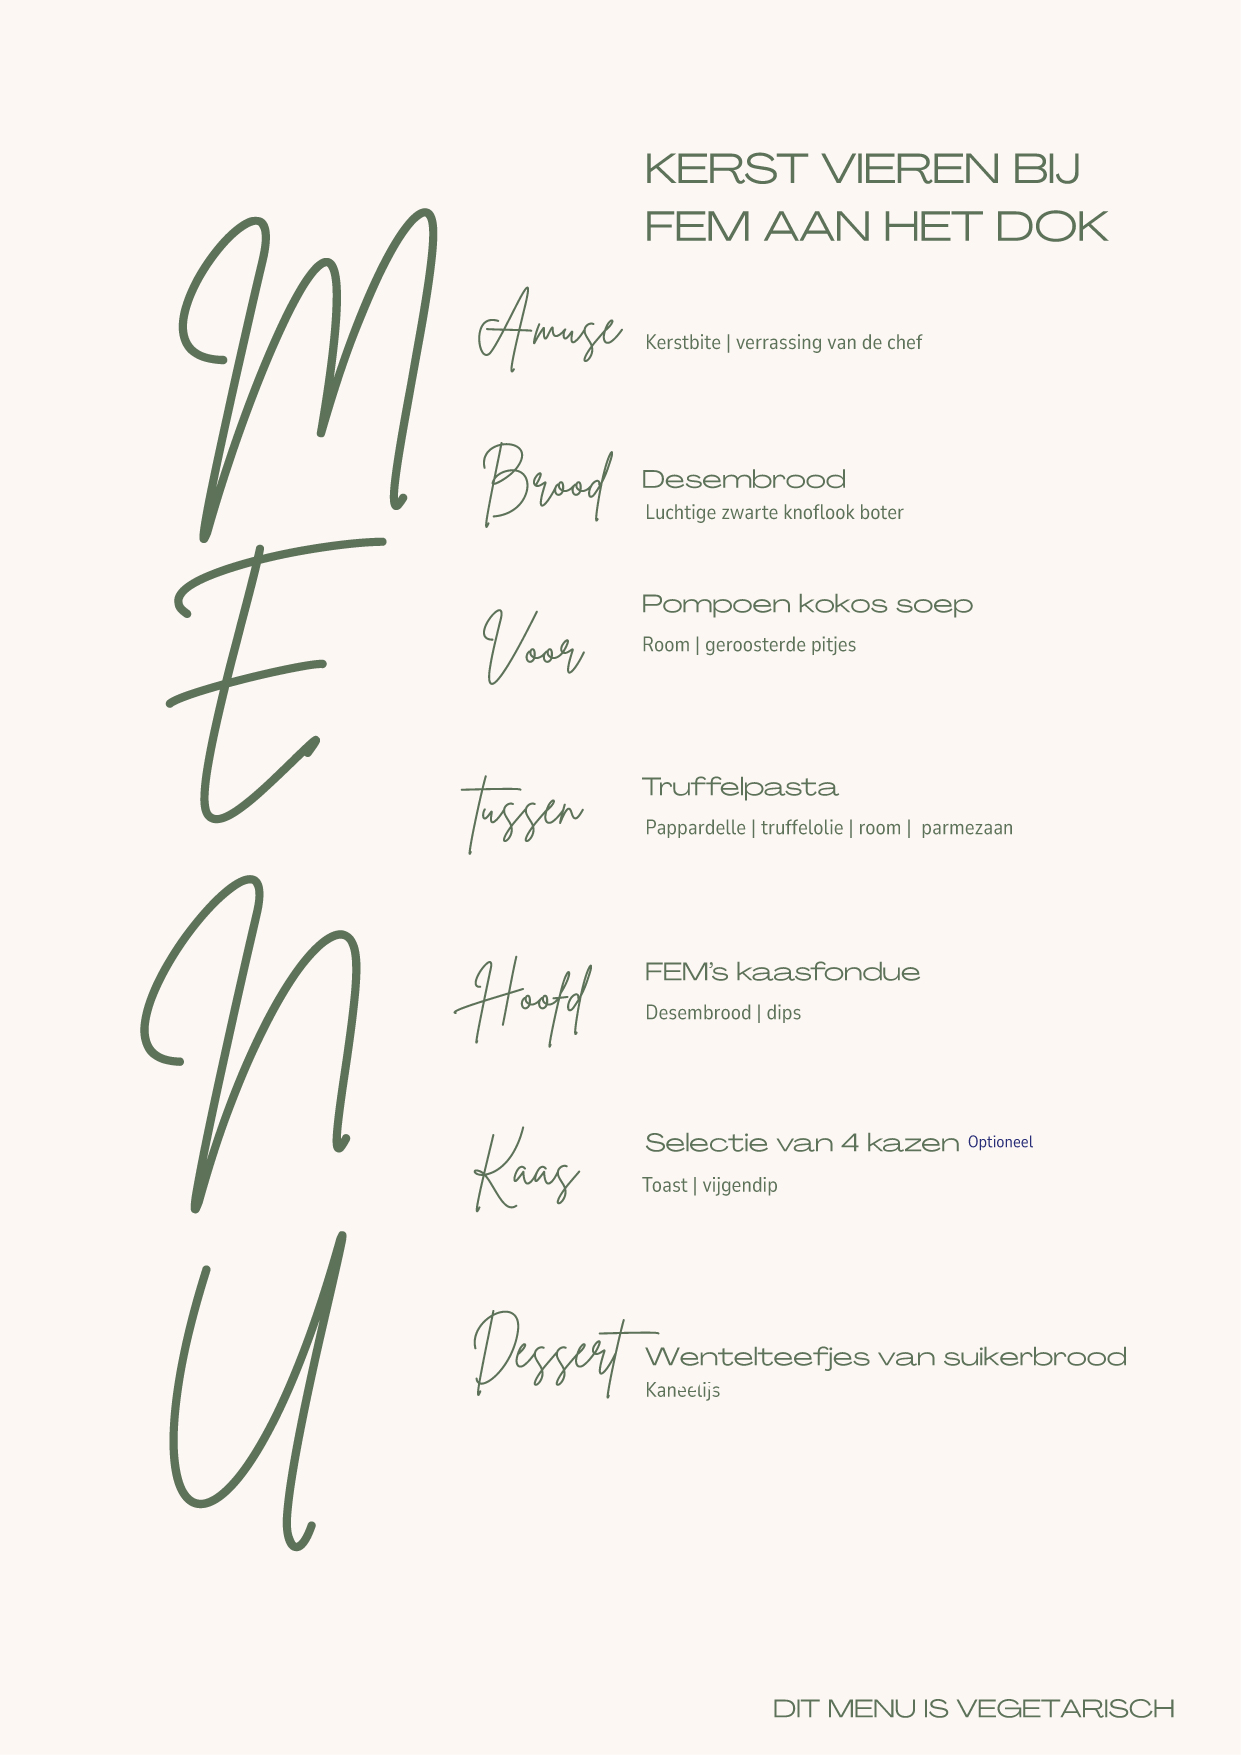 KERST VIEREN BIJ
FEM AAN HET DOK
MENU
Amuse
Kerstbite | verrassing van de chef
Brood
Desembrood
Luchtige zwarte knoflook boter
Voor
Pompoen kokos soep
Room | geroosterde pitjes
Tussen
Truffelpasta
Pappardelle | truffelolie | room | parmezaan
Hoofd
FEM's kaasfondue
Desembrood | dips
Kaas
Selectie van 4 kazen Optioneel
Toast | vijgendip
Dessert
Wentelteefjes van suikerbrood
Kaneelijs
DIT MENU IS VEGETARISCH